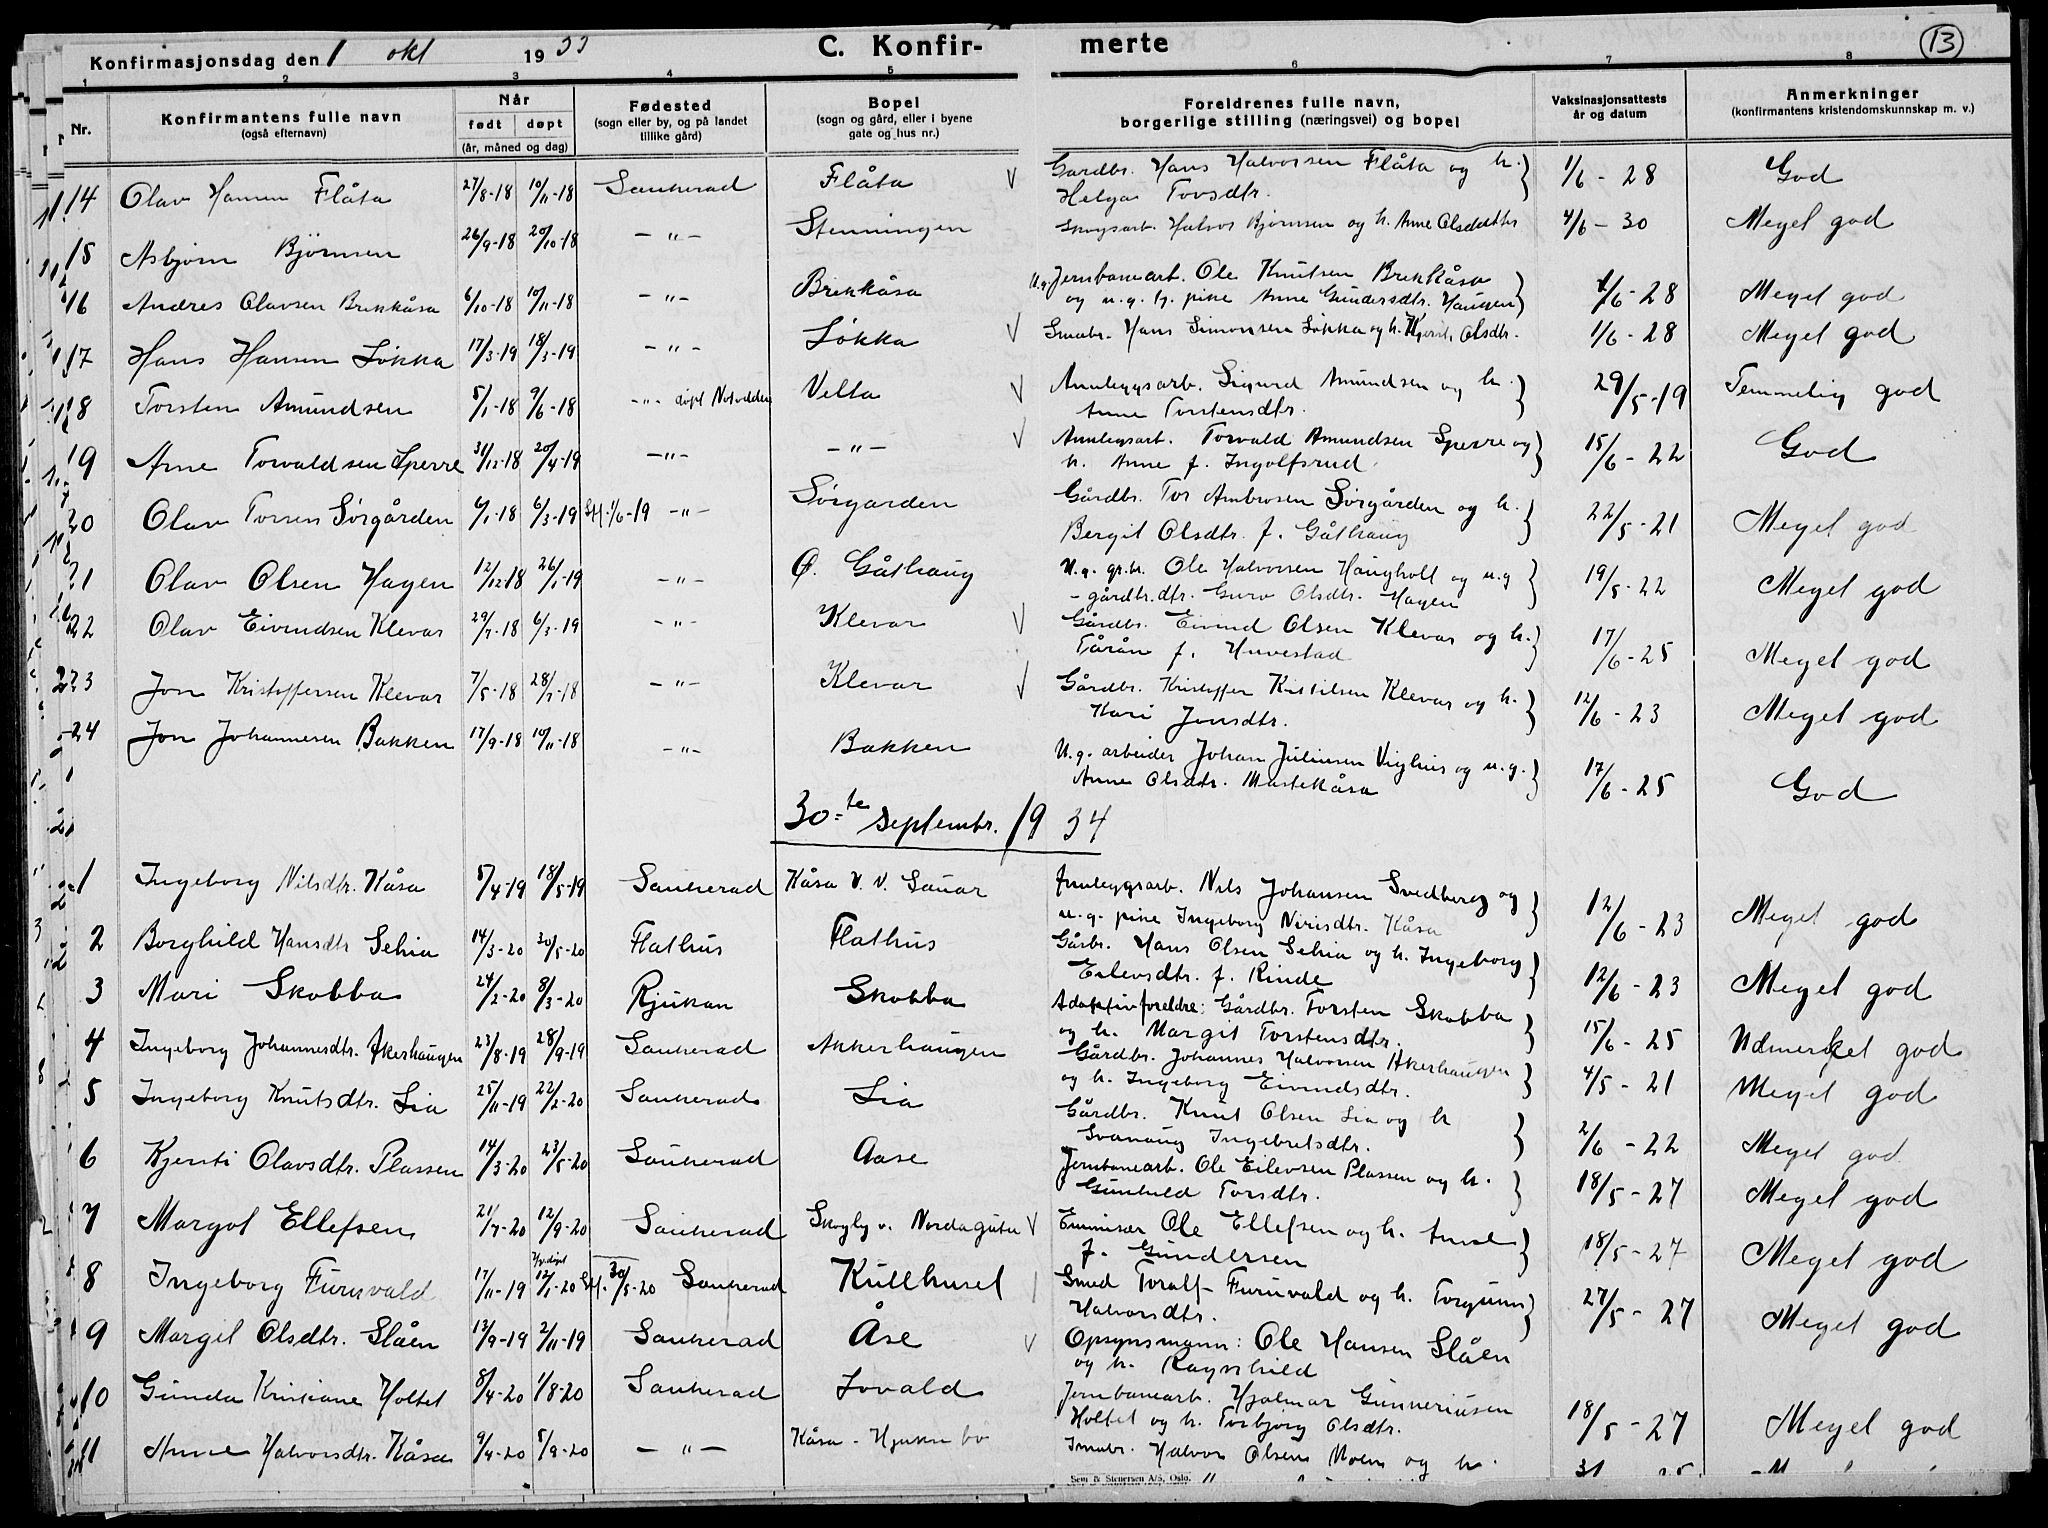 Konfirmasjonsdag den 1 okt 1933 C. Konfir- merte 13
1 2 3 4 5 6 7 8
Nr. Konfirmantens fulle navn (også efternavn) Når født døpt (år, måned og dag) Fødested (sogn eller by, og på landet tillike gård) Bopel (sogn og gård, eller i byene gate og hus nr.) Foreldrenes fulle navn, borgerlige stilling (næringsvei) og bopel Vaksinasjonsattests år og datum Anmerkninger (konfirmantens kristendomskunnskap m. v.)
14 Olav Hansen Flåta 27/8-18 10/11-18 Sauherad Flåta √ Gardbr. Hans Halvorsen Flåta og h. 1/6 - 28 God
Helga Tovsdtr.
15 Asbjørn Bjørnsen 26/9-18 20/10-18 -"- Stenningen Skogsarb. Halvor Bjørnsen og h. Anne Olsdatter 4/6 - 30 Meget god
16 Andres Olavsen Brekkåsa 6/10-18 10/11-18 -"- Brekkåsa U.g. Jernbanearb. Ole Knutsen Brekkåsa 1/6-28 Meget god
og u.g. h. pike Anne Gundersdtr. Haugen
17 Hans Hansen Løkka 17/3-19 18/3-19 -"- Løkka √ Småbr. Hans Simonsen Løkka og h. Kjersti Olsdtr. 1/6 - 28 Meget god
18 Torsten Amundsen 5/1-18 9/6-18 -"- døpt Notodden Velta √ Annleggsarb. Sigurd Amundsen og h. 29/5-19 Temmelig god
Anne Torstensdtr.
19 Arne Torvaldsen Sperre 31/12-18 20/4-19 -"- -"- √ Annlegsarb. Torvald Amundsen Sperre og 15/6 - 22 God
h. Anne f. Ingolfsrud
20 Olav Torsen Sørgården 6/1-18 6/3-19 St. 1/6-19 -"- Sørgarden Gårdbr. Tor Ambrosen Sørgården og h. 22/5-21 Meget god
Bergit Olsdtr. f. Gåthaug
21 Olav Olsen Hagen 12/12-18 26/1-19 -"- Ø. Gåthaug U.g. gr.br. Ole Halvorsen Haugholt og u.g 19/5-22 Meget god
- gårdbr.dtr. Guro Olsdtr. Hagen
22 Olav Eivindsen Klevar 29/7-18 6/3-19 -"- Klevar √ Gårdbr. Eivind Olsen Klevar og h. 17/6-25 Meget god
Tårån f. Huvestad
23 Jon Kristoffersen Klevar 7/5-18 28/7-18 -"- Klevar √ Gårdbr. Kristoffer Kittilsen Klevar og h. 12/6-23 Meget god
Kari Jonsdtr.
24 Jon Johannesen Bakken 17/9-18 10/11-18 -"- Bakken U.g. arbeider Johan Juliusen Vighus og u.g. 17/6-25 God
Anne Olsdtr. Mastekåsa
30=te septembr. 1934
1 Ingeborg Nilsdtr. Kåsa 5/4-19 18/5-19 Sauherad Kåsa V. V. Sauar Annleggsarb. Nils Johansen Svedberg og 12/6-23 Meget god
u.g. pike Ingeborg Nirisdtr. Kåsa
2 Borghild Hansdtr Sehia 14/3-20 30/5-20 Flathus Flathus Gårbr. Hans Olsen Sehia og h. Ingeborg 12/6-23 Meget god
Eilevsdtr. f. Rinde
3 Mari Skobba 24/2-20 8/3-20 Rjukan Skobba Adoptivforeldre: Gårdbr. Torsten Skobba 15/6-25 Udmerket god
og h. Margit Torstensdtr.
4 Ingeborg Johannesdtr. Akerhaugen 23/8-19 28/9-19 Sauherad Akkerhaugen Gårdbr. Johannes Halvorsen Akerhaugen 4/5-21 Meget god
og h. Ingeborg Eivindsdtr.
5 Ingeborg Knutsdtr. Lia 25/11-19 22/2-20 Sauherad Lia Gårdbr. Knut Olsen Lia og h 2/6-22 Meget god
Svanaug Ingebretsdtr.
6 Kjersti Olavsdtr. Plassen 14/3-20 23/5-20 Sauherad Aase Jernbanearb. Ole Eilevsen Plassen og h. 18/5-27 Meget god
Gunhild Torsdtr.
7 Margot Ellefsen 21/7-20 12/9-20 Sauherad Skogly v. Nordagutu √ Emmisær Ole Ellefsen og h. Anne 18/5-27 Meget god
f. Gundersen
8 Ingeborg Furuvald 17/11-19 12/1-20 St. 30/5-20 Sauherad Kullhuset Smed Toralf Furuvald og h. Torgunn 27/5-27 Meget god
Halvorsdtr.
9 Margit Olsdtr. Slåen 13/9-19 2/11-19 Sauherad Åse √ Opsynsmann: Ole Hansen Slåen
og h. Ragnhild
10 Gunda Kristiane Holtet 8/4-20 1/8-20 Sauherad Lovald Jernbanearb. Hjalmar Gunneriusen 18/5-27 Meget god
Holtet og h. Torbjørg Olsdtr.
11 Anne Halvorsdtr. Kåsa 9/4-20 5/9-20 -"- Kåsa - Hjuksebø Småbr. Halvor Olsen Moen og h.
Sem & Stenersen A/S, Oslo.